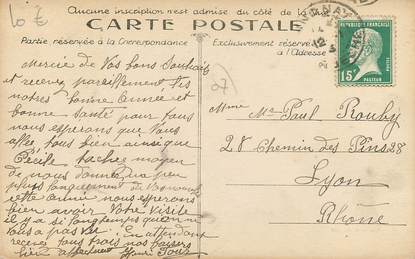 10 €
Aucune inscription n'est admise du côté de la vue
CARTE POSTALE
Partie réservée à la Correspondance
Exclusivement réservé
à l'Adresse
POSTES
15c
PASTEUR
Merci de Vos bons Souhaits
et recevez pareillement les
notres bonne année et
bonne santé pour tous
nous esperons que Vous
allez tous bien ainsique
Cécile tachez moyen
de nous donner un peu
plus longuement de Vos nouvelles
cette année nous esperons
bien avoir Votre Visite
il y a si longtemps qu'on ne
Vous a pas Vu En attendant
recevez tous trois nos baisers
bien affectueux
97
Mme Paul Rouby
28 Chemin des Pins 28
Lyon
Rhône